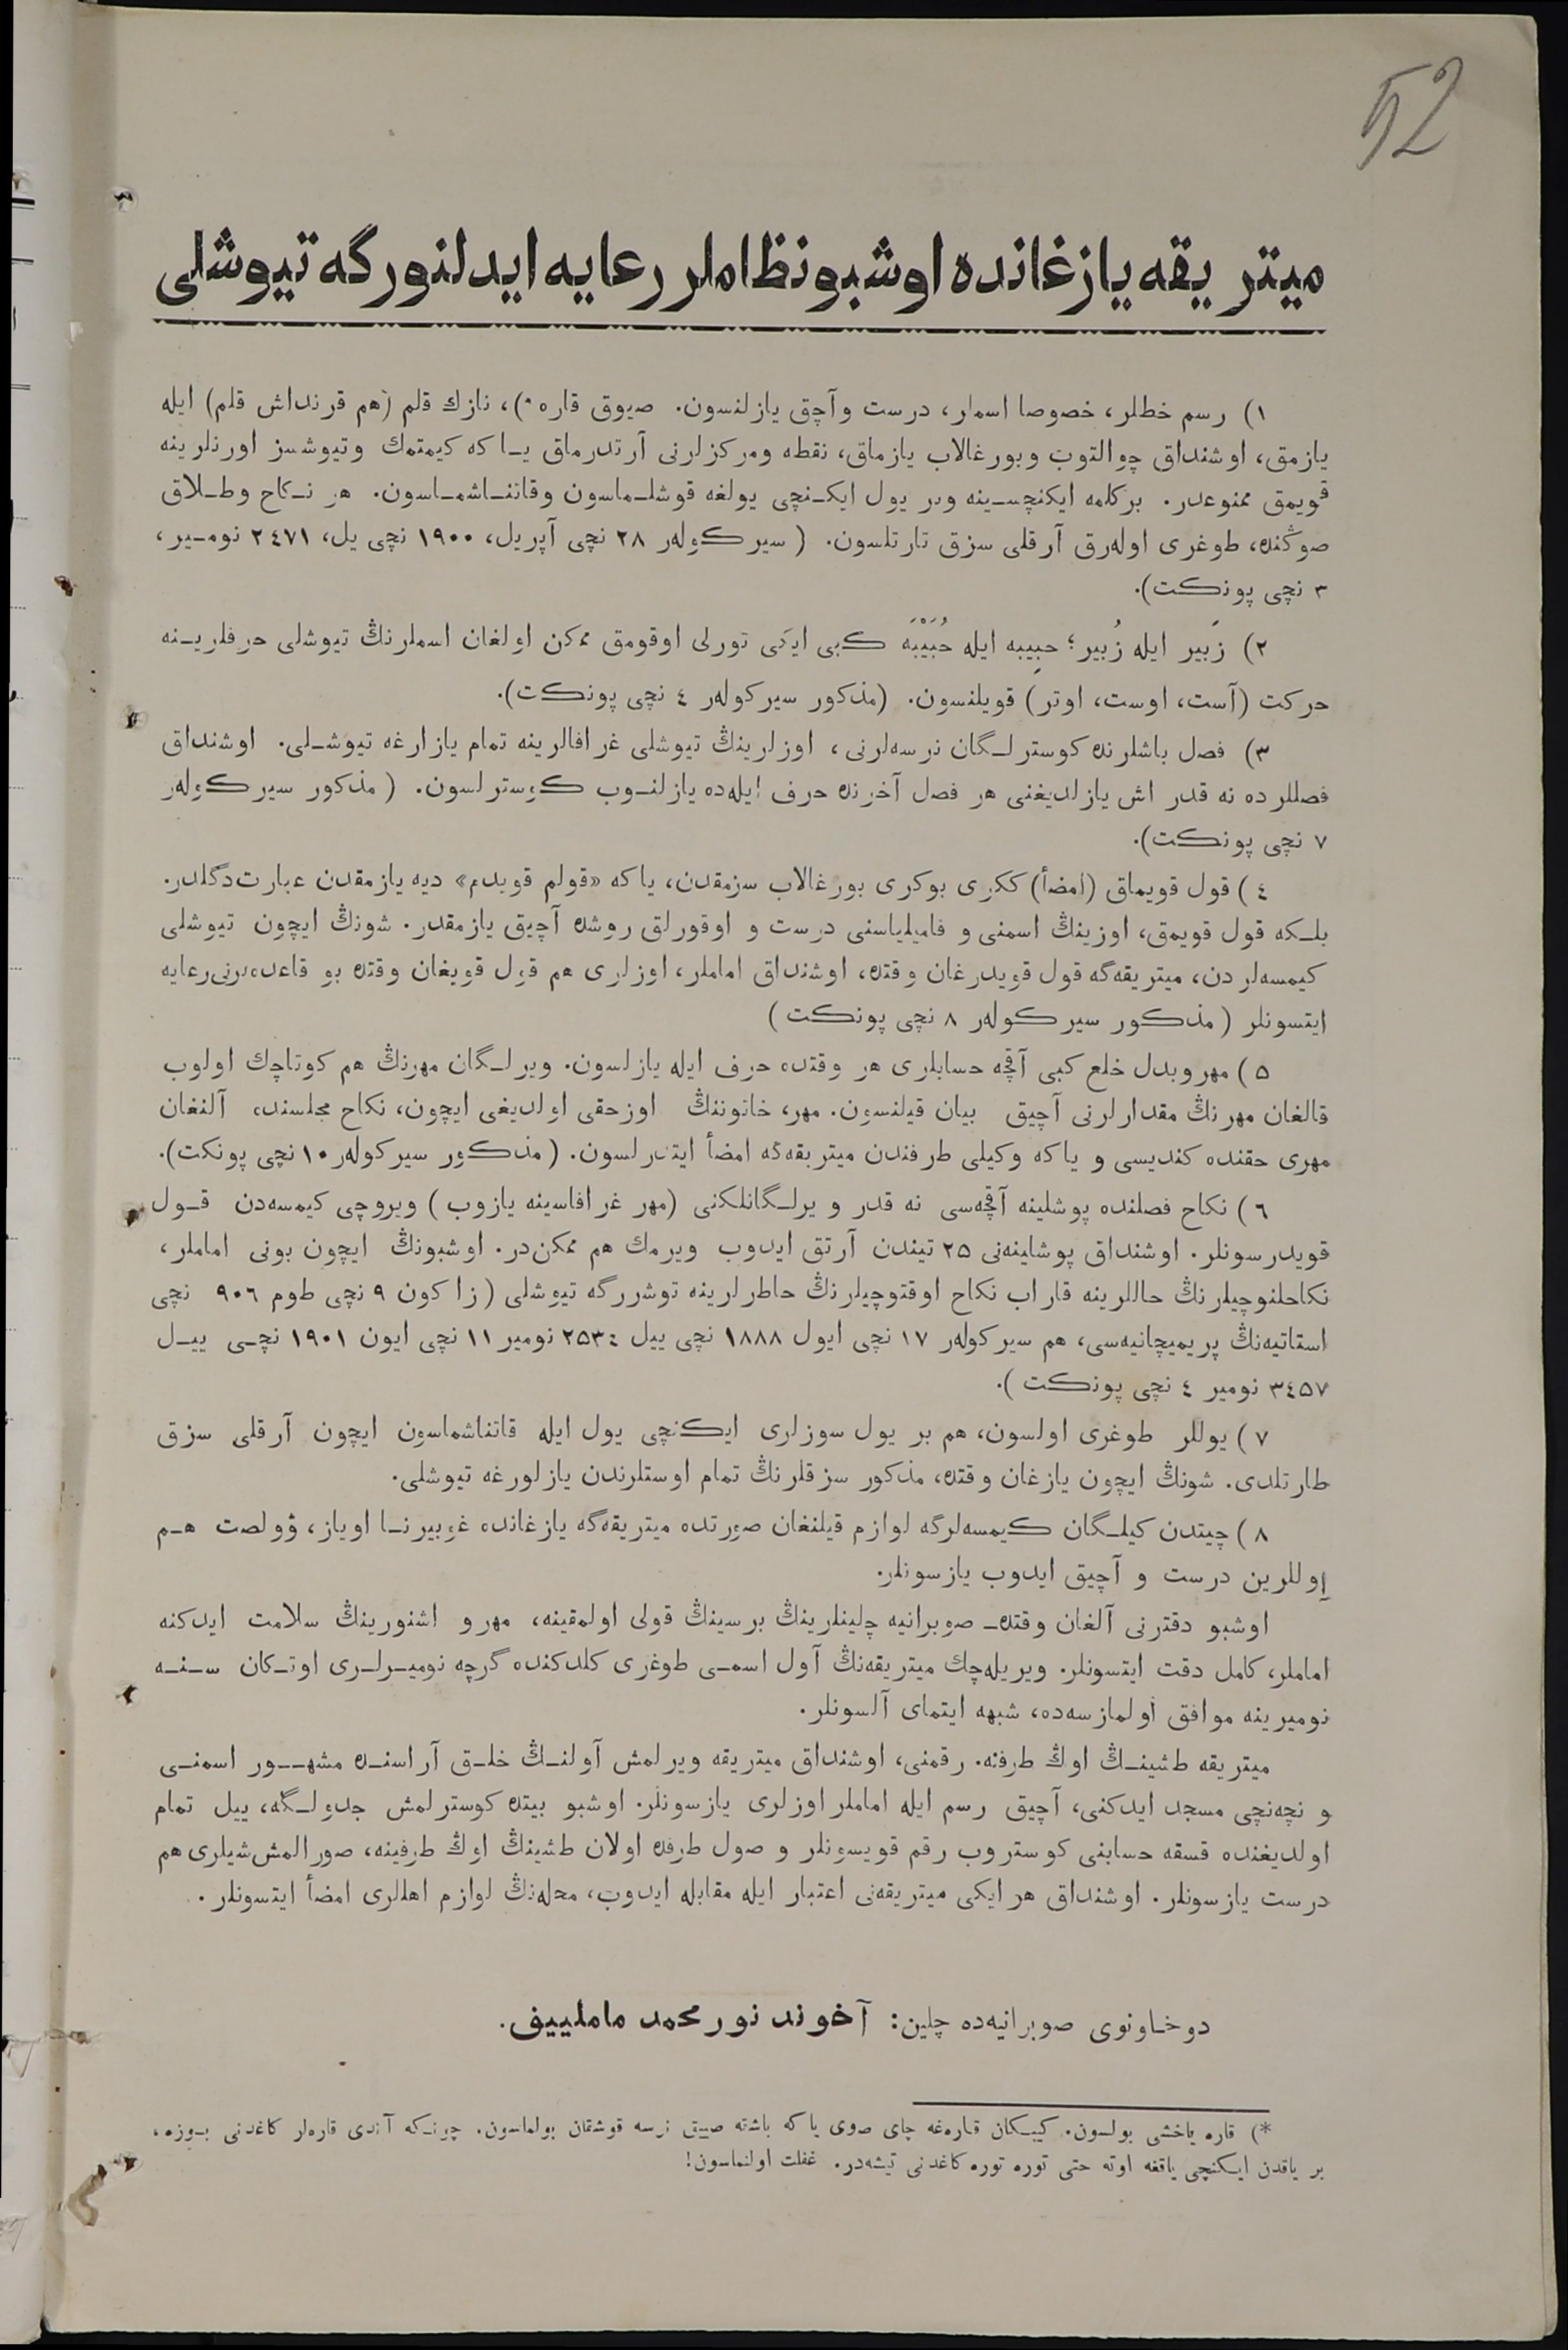 52
ميتريقه يازغانده اوشبو نظاملر رعايه ايدلنورگه تيوشلى
١) رسم خطلر، خصوصا اسملر، درست وآچق يازلنسون. صيوق قاره *)، نازك قلم (هم قرنداش قلم) ايله
يازمق، اوشنداق چوالتوب وبورغالاب يازماق، نقطه ومركزلرنى آرتدرماق يـا كه كيمتمك وتيوشسز اورنلرينه
قويمق ممنوعدر. بركلمه ايكنچسـينه وبر يول ايكـنچى يولغه قوشلـماسون وقاتنـاشمـاسون. هر نـكاح وطـلاق
صوڭنده، طوغرى اولەرق آرقلى سزق تارتلسون. (سيركولەر ٢٨ نچى آپريل، ١٩٠٠ نچى يل، ٢٤٧١ نوميـر،
٣ نچى پونكت).
٢) زَبير ايله زُبير؛ حبِيبه ايله حُبَيْبَه كبى ايكى تورلى اوقومق ممكن اولغان اسملرنڭ تيوشلى حرفلريـنه
حركت (آست، اوست، اوتر) قويلنسون. (مذكور سيركولەر ٤ نچى پونكت).
٣) فصل باشلرنده كوسترلـگان نرسەلرنى، اوزلرينڭ تيوشلى غرافالرينه تمام يازارغه تيوشـلى. اوشنداق
فصللرده نه قدر اش يازلديغنى هر فصل آخرنده حرف ايلەده يازلنـوب كوسترلسون. (مذكور سيركولەر
٧ نچى پونكت).
٤) قول قويماق (امضأ) ككرى بوكرى بورغالاب سزمقدن، ياكه «قولم قويدم» ديه يازمقدن عبارت دگلدر.
بلـكه قول قويمق، اوزينڭ اسمنى و فاميلياسنى درست و اوقورلق روشده آچيق يازمقدر. شونڭ ايچون تيوشلى
كيمسەلردن، ميتريقەگه قول قويدرغان وقتده، اوشنداق اماملر، اوزلرى هم قول قويغان وقتده بو قاعدەلرنى رعايه
ايتسونلر (مذكور سيركولەر ٨ نچى پونكت)
٥) مهر وبدل خلع كبى آقچه حسابلرى هر وقتده حرف ايله يازلسون. ويرلـگان مهرنڭ هم كوتاچك اولوب
قالغان مهرنڭ مقدارلرنى آچيق بيان قيلنسون. مهر، خاتوننڭ اوزحقى اولديغى ايچون، نكاح مجلسنده آلنغان
مهرى حقنده كنديسى و ياكه وكيلى طرفندن ميتريقەگه امضأ ايتدرلسون. (مذكور سيركولەر ١٠ نچى پونكت).
٦) نكاح فصلنده پوشلينه آقچەسى نه قدر و يرلـگانلكنى (مهر غرافاسينه يازوب) ويروچى كيمسەدن قـول
قويدرسونلر. اوشنداق پوشلينەنى ٢٥ تيندن آرتق ايدوب ويرمك هم ممكن در. اوشبونڭ ايچون بونى اماملر،
نكاحلنوچيلرنڭ حاللرينه قاراب نكاح اوقتوچيلرنڭ خاطرلرينه توشررگه تيوشلى (زاكون ٩ نچى طوم ٩٠٦ نچى
استاتيەنڭ پريميچانيەسى، هم سيركولەر ١٧ نچى ايول ١٨٨٨ نچى ييل ٢٥٣٤ نومير ١١ نچى ايون ١٩٠١ نچـى ييـل
٣٤٥٧ نومير ٤ نچى پونكت).
٧) يوللر طوغرى اولسون، هم بر يول سوزلرى ايكنچى يول ايله قاتناشماسون ايچون آرقلى سزق
طارتلدى. شونڭ ايچون يازغان وقتده، مذكور سزقلرنڭ تمام اوستلرندن يازلورغه تيوشلى.
٨) چيتدن كيلـگان كيمسەلرگه لوازم قيلنغان صورتده ميتريقەگه يازغانده غوبيرنـا اوياز، ۋولصت هـم
اوللرين درست و آچيق ايدوب يازسونلر.
اوشبو دفترنى آلغان وقتده صوبرانيه چلينلرينڭ برسينڭ قولى اولمقينه، مهر و اشنورينڭ سلامت ايدكنه
اماملر، كامل دقت ايتسونلر. ويريلەچك ميتريقەنڭ آول اسمـى طوغرى كلدكنده گرچه نوميـرلـرى اوتـكان سـنـه
نوميرينه موافق اولمازسەده، شبهه ايتماى آلسونلر.
ميتريقه طشينـڭ اوڭ طرفنه. رقمنى، اوشنداق ميتريقه ويرلمش آولنـڭ خلـق آراسنـده مشهـور اسمنـى
و نچەنچى مسجد ايدكنى، آچيق رسم ايله اماملر اوزلرى يازسونلر. اوشبو بيتده كوسترلمش جدولـگه، ييل تمام
اولديغنده قسقه حسابنى كوستروب رقم قويسونلر و صول طرفده اولان طشينڭ اوڭ طرفينه، صورالمش شيلرى هم
درست يازسونلر. اوشنداق هر ايكى ميتريقەنى اعتبار ايله مقابله ايدوب، محلەنڭ لوازم اهللرى امضأ ايتسونلر.
دوخـاونوى صوبرانيەده چلين: آخوند نورمحمد ماملييف.
*) قاره ياخشى بولسون. كيبـكان قـارەغه چاى صوى ياكه باشته صييق نرسه قوشقان بولماسون. چونـكه آندى قارەلر كاغدنى بـوزه،
بر ياقدن ايـكنچى ياقغه اوته حتى توره توره كاغدنى تيشەدر. غفلت اولنماسون!